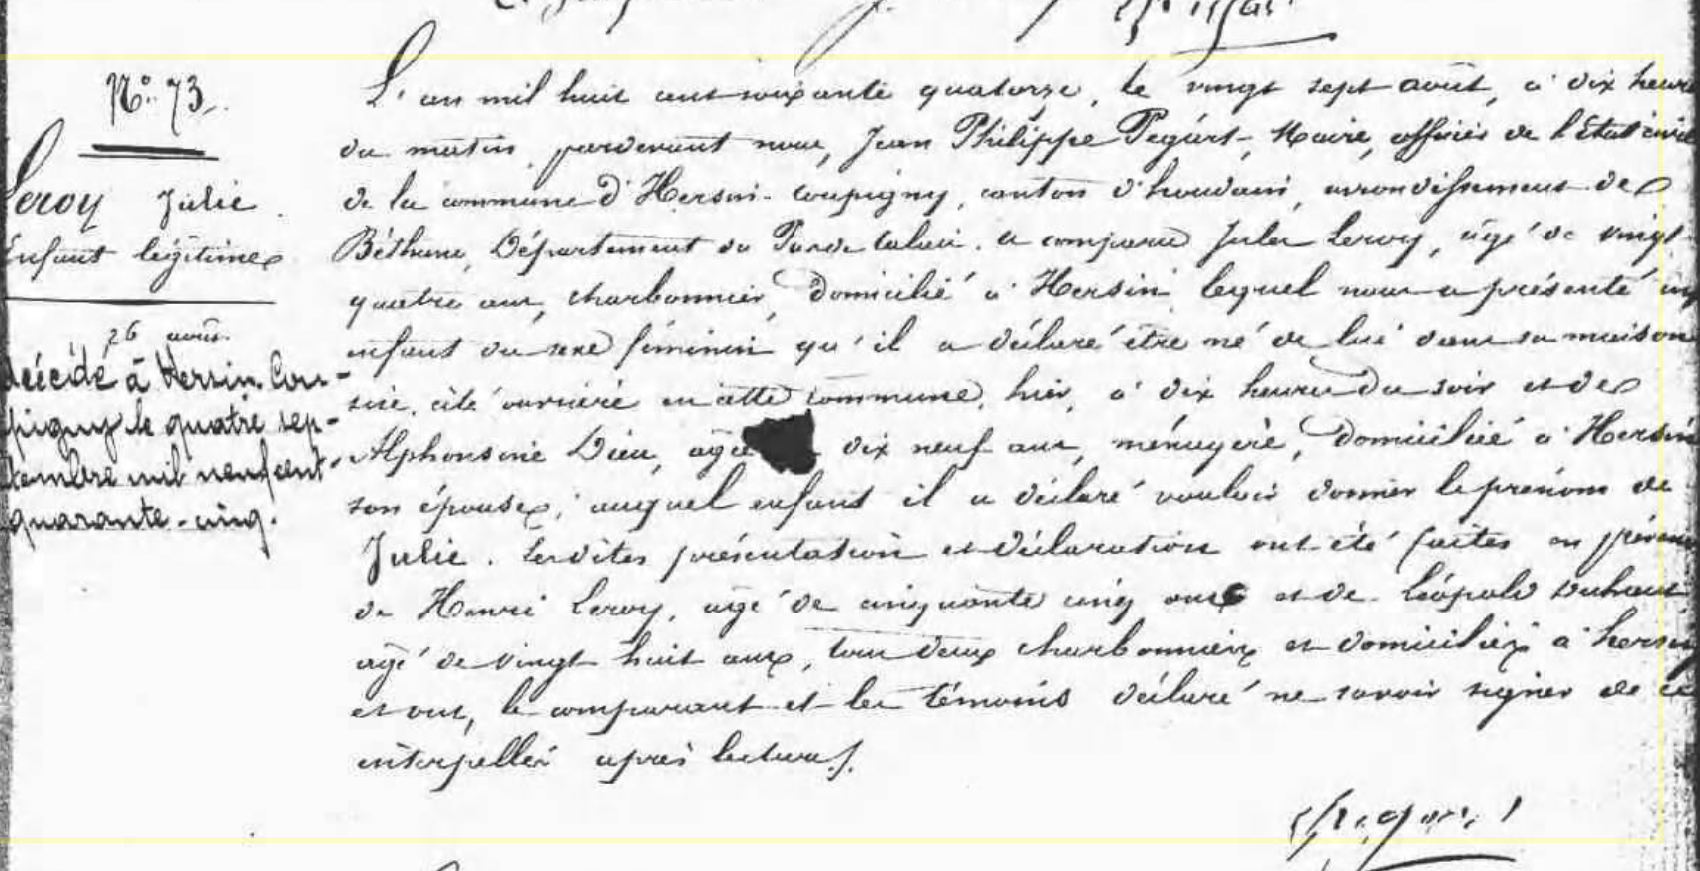 N° 73.
Leroy Julie
Enfant légitime
26 août.
décédé à Hersin-Cou-
pigny le quatre sep-
tembre mil neuf cent
quarante-cinq.
L'an mil huit cent soixante quatorze, le vingt sept août, à dix heures
du matin, pardevant nous, Jean Philippe Maire, officier de l'état civil
de la commune d'Hersin-Coupigny, canton d'houdain, arrondissement de
Béthune, Département du Pas de Calais. a comparu Jules Leroy, âgé de vingt
quatre ans, charbonnier, domicilié à Hersin, lequel nous a présenté un
enfant du sexe féminin qu'il a déclaré être né de lui dans sa maison
sise, cité ouvrière en cette commune, hier, à dix heures du soir et de
Alphonsine Dieu, âgée dix neuf ans, ménagère, domiciliée à Hersin
son épouse, auquel enfant il a déclaré vouloir donner le prénom de
Julie. Lesdites présentation et déclaration ont été faites en présence
de Henri Leroy, âgé de cinquante cinq ans et de Léopold
âgé de vingt huit ans, tous deux charbonniers et domiciliés à hersin
et ont, le comparant et les témoins déclaré ne savoir signer de ce
interpellés après lecture.